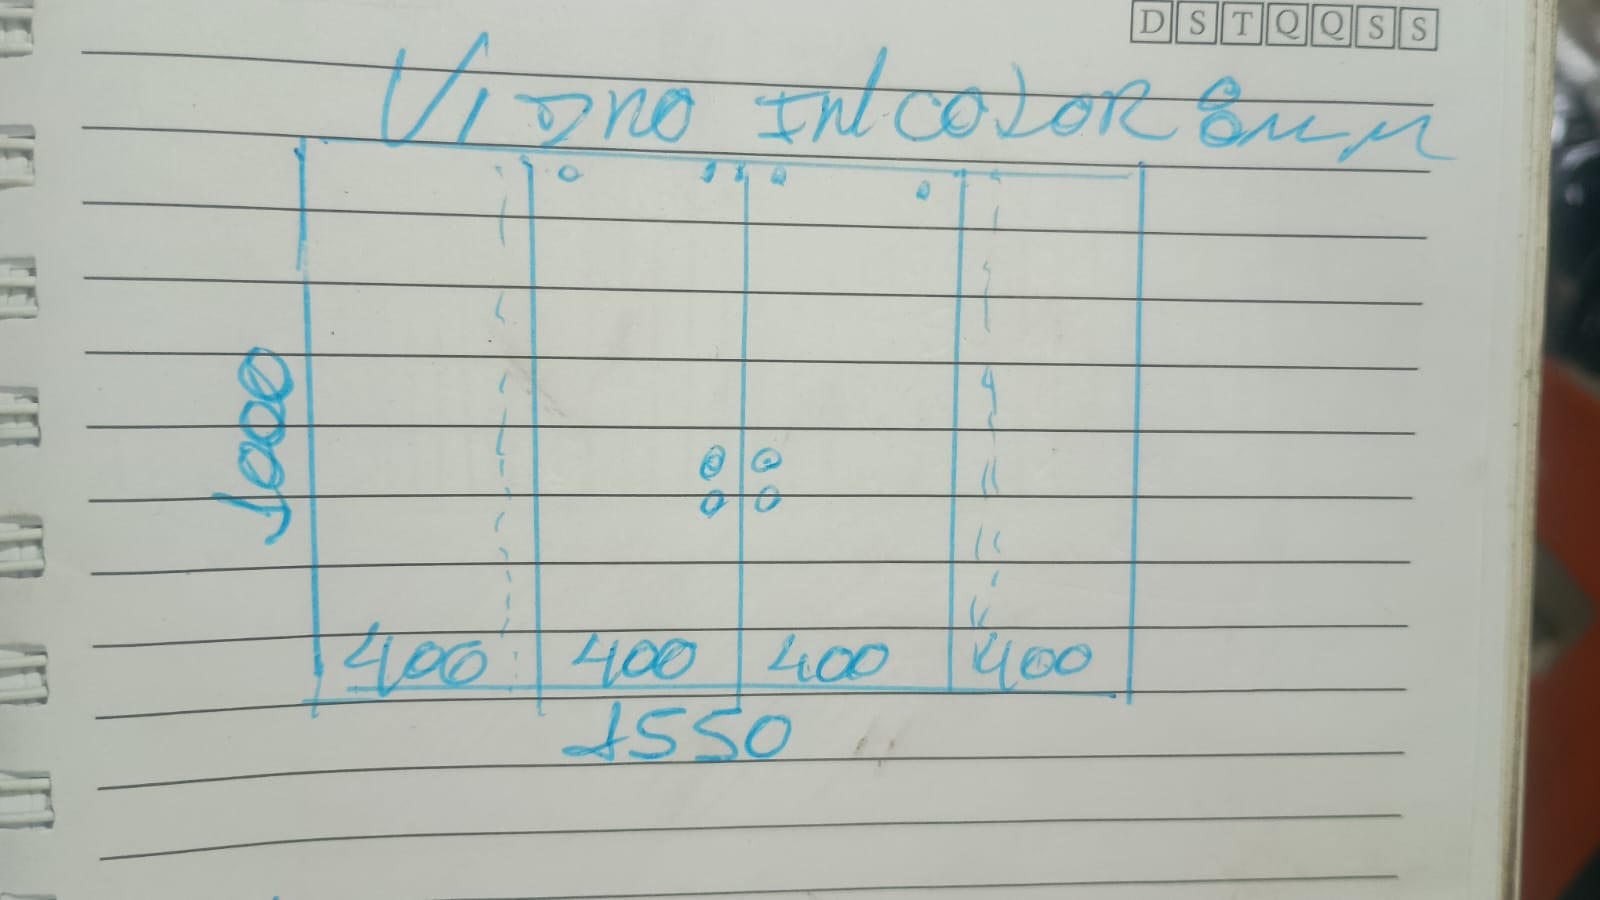 D S T Q Q S S
VIDRO INCOLOR 8mm
1000
400 400 400 400
1550